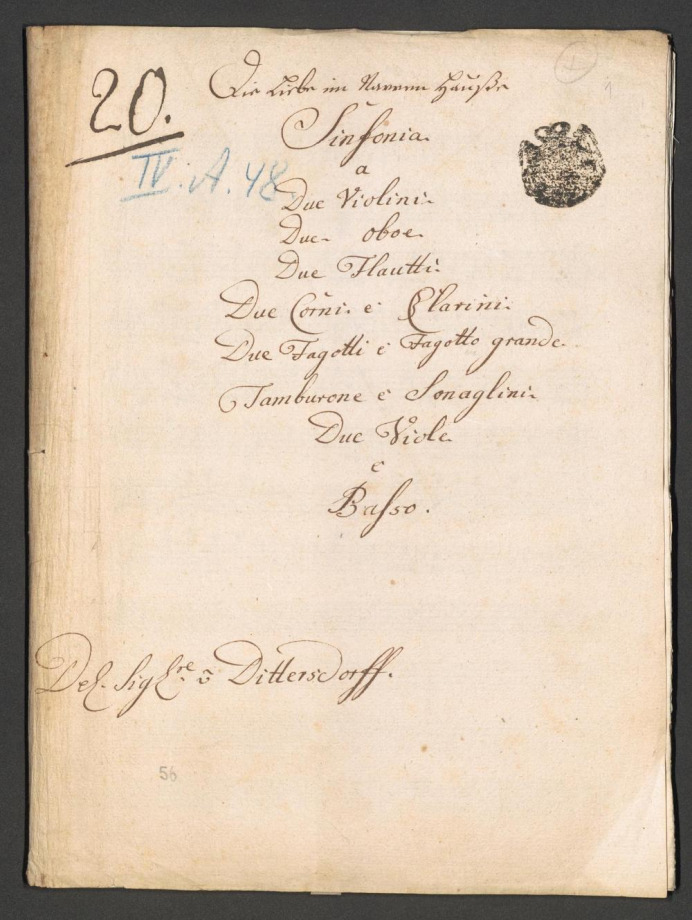 20.
Die Liebe im Narren Hauße
1
1
IV. A. 48
Sinfonia
a
Due Violini
Due oboe
Due Flautti
Due Corni e Clarini
Due Fagotti e Fagotto grande
Tamburone e Sonaglini
Due Viole
e
Basso.
Del Sig[re] v Dittersdorff.
56